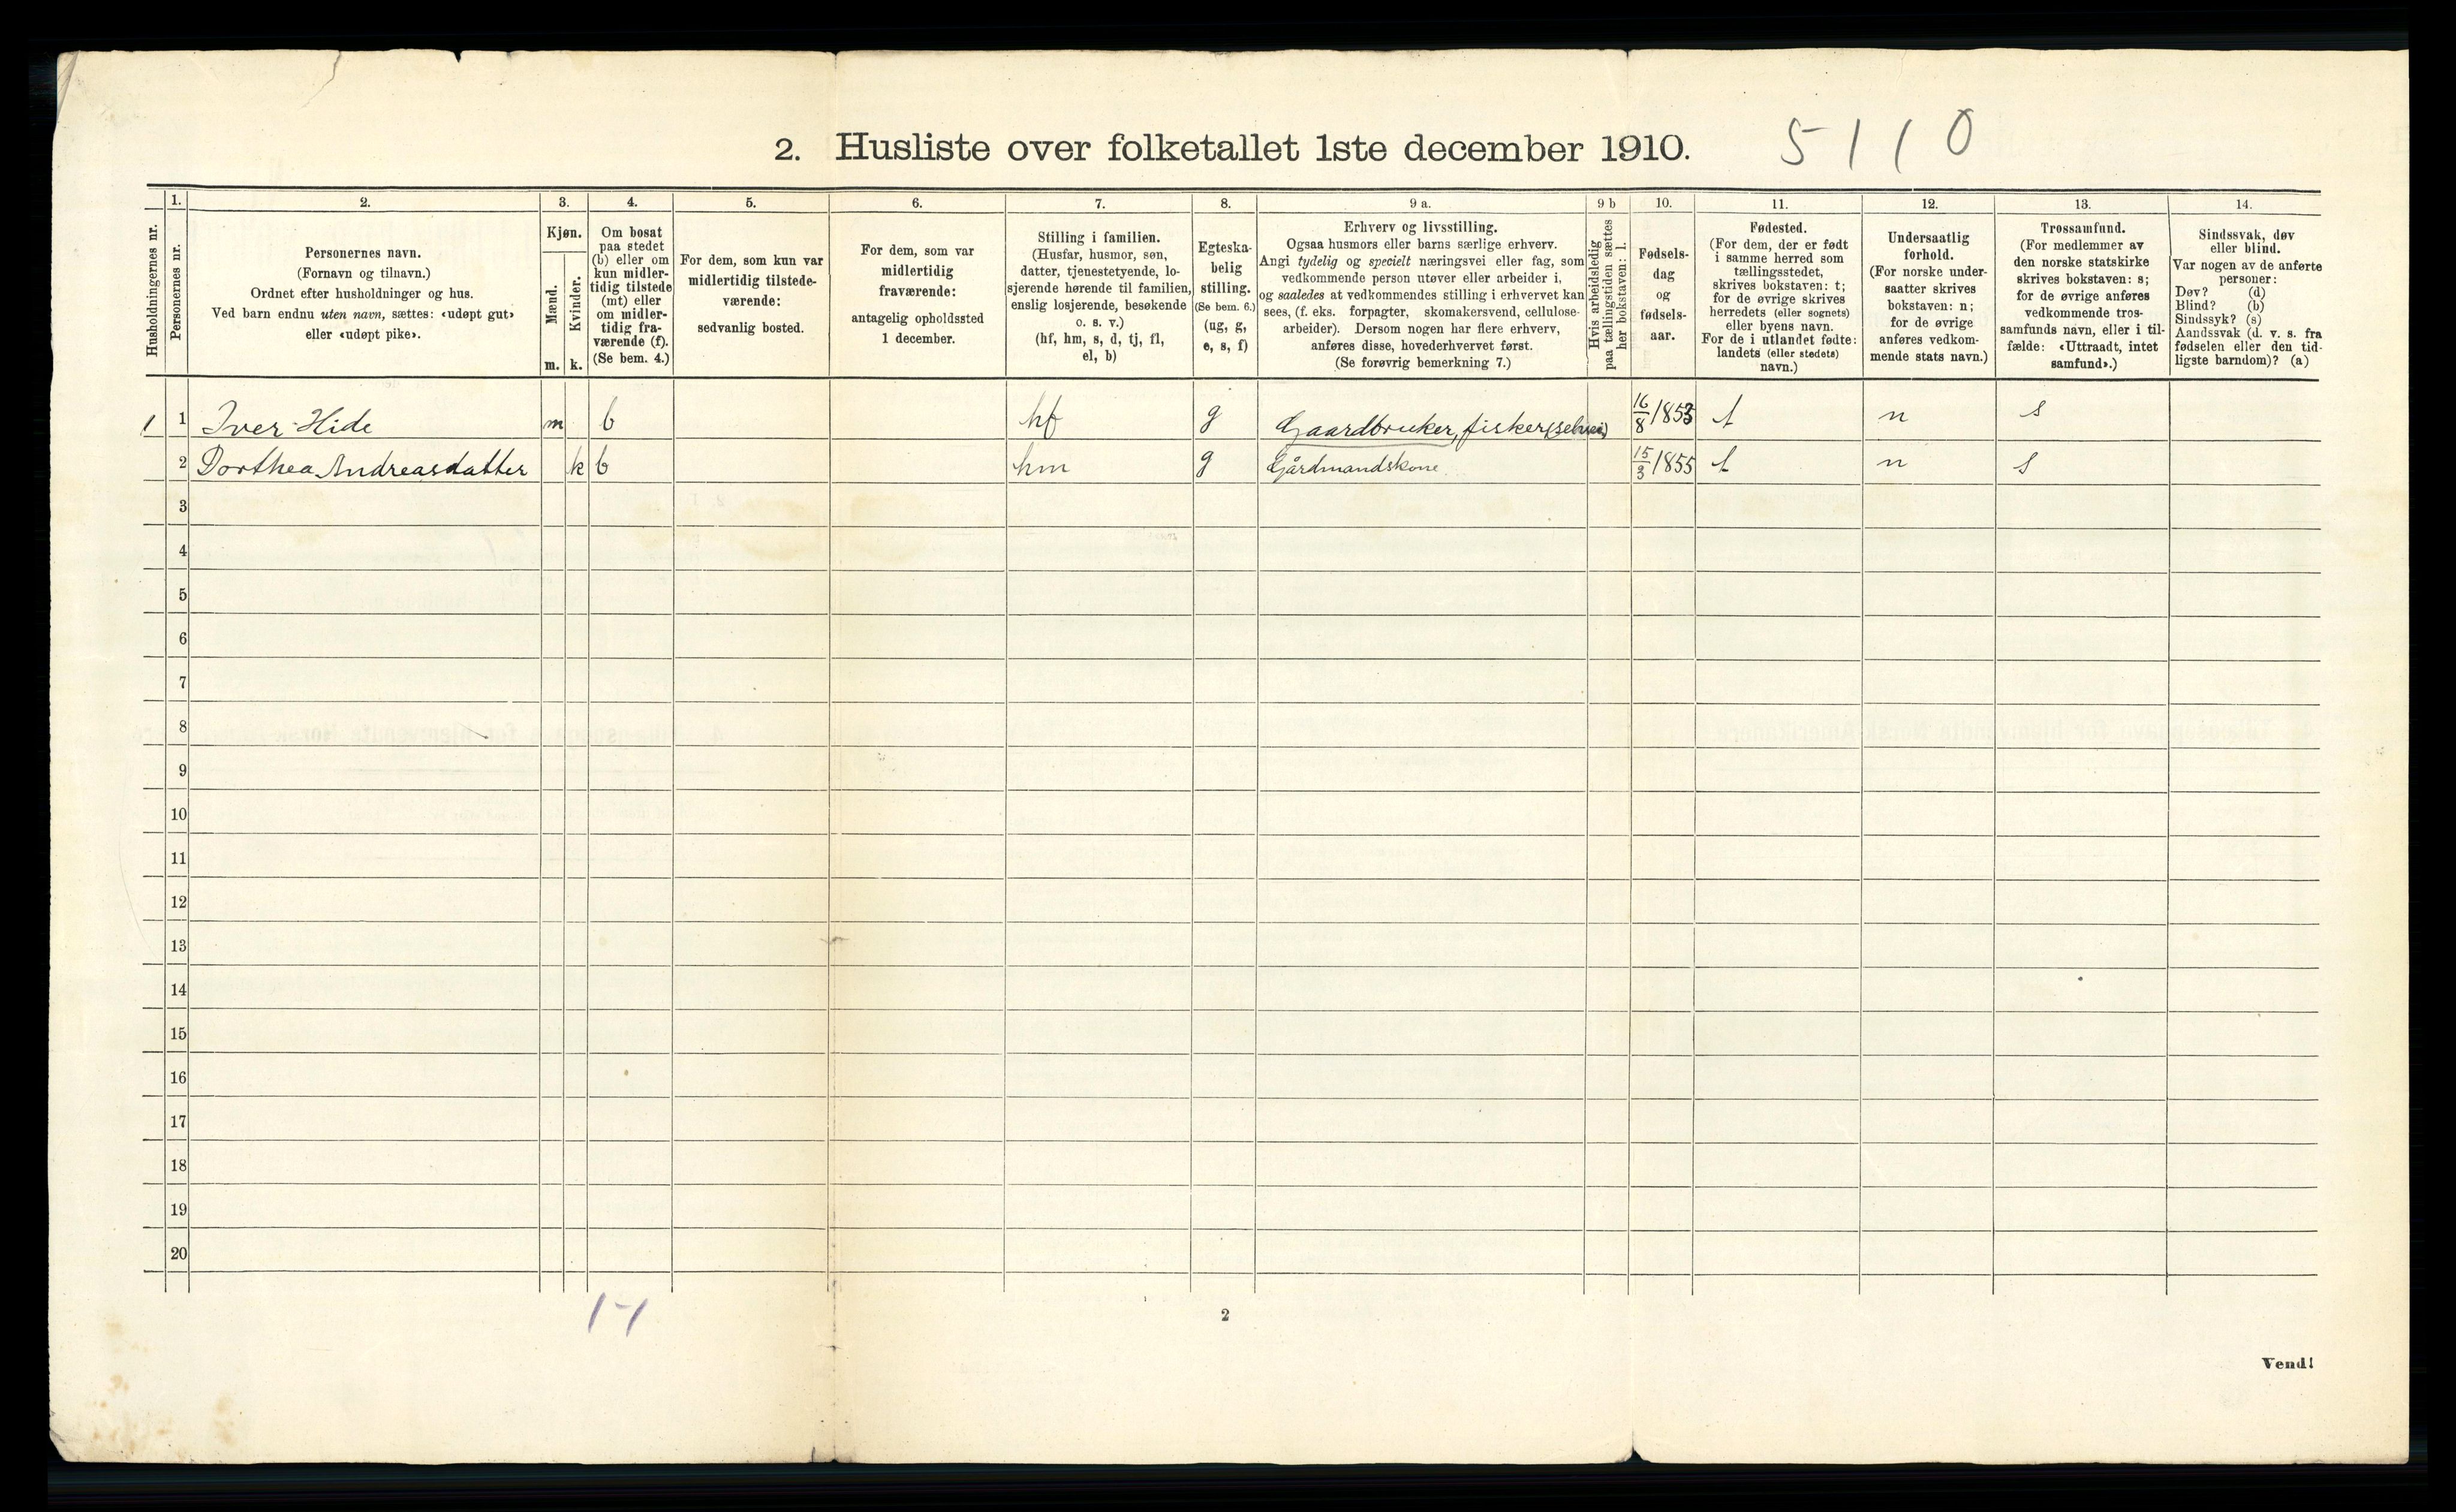 2. Husliste over folketallet 1ste december 1910. 5110
Husholdningernes nr.
1.
Personernes nr.
2.
Personernes navn.
(Fornavn og tilnavn.)
Ordnet efter husholdninger og hus.
Ved barn endnu uten navn, sættes: «udøpt gut»
eller «udøpt pike».
3.
Kjøn.
Mænd.
m.
Kvinder.
k.
4.
Om bosat
paa stedet
(b) eller om
kun midler-
tidig tilstede
(mt) eller
om midler-
tidig fra-
værende (f).
(Se bem. 4.)
5.
For dem, som kun var
midlertidig tilstede-
værende:
sedvanlig bosted.
6.
For dem, som var
midlertidig
fraværende:
antagelig opholdssted
1 december.
7.
Stilling i familien.
(Husfar, husmor, søn,
datter, tjenestetyende, lo-
sjerende hørende til familien,
enslig losjerende, besøkende
o. s. v.)
(hf, hm, s, d, tj, fl,
el, b)
8.
Egteska-
belig
stilling.
(Se bem. 6.)
(ug, g,
e, s, f)
9 a.
Erhverv og livsstilling.
Ogsaa husmors eller barns særlige erhverv.
Angi tydelig og specielt næringsvei eller fag, som
vedkommende person utøver eller arbeider i,
og saaledes at vedkommendes stilling i erhvervet kan
sees, (f. eks. forpagter, skomakersvend, cellulose-
arbeider). Dersom nogen har flere erhverv,
anføres disse, hovederhvervet først.
(Se forøvrig bemerkning 7.)
9 b
Hvis arbeidsledig
paa tællingstiden sættes
her bokstaven: l.
10.
Fødsels-
dag
og
fødsels-
aar.
11.
Fødested.
(For dem, der er født
i samme herred som
tællingsstedet,
skrives bokstaven: t;
for de øvrige skrives
herredets (eller sognets)
eller byens navn.
For de i utlandet fødte:
landets (eller stedets)
navn.)
12.
Undersaatlig
forhold.
(For norske under-
saatter skrives
bokstaven: n;
for de øvrige
anføres vedkom-
mende stats navn.)
13.
Trossamfund.
(For medlemmer av
den norske statskirke
skrives bokstaven: s;
for de øvrige anføres
vedkommende tros-
samfunds navn, eller i til-
fælde: «Uttraadt, intet
samfund».)
14.
Sindssvak, døv
eller blind.
Var nogen av de anførte
personer:
Døv? (d)
Blind? (b)
Sindssyk? (s)
Aandssvak (d. v. s. fra
fødselen eller den tid-
ligste barndom)? (a)
1 1 Iver Hide m b hf g Gaardbruker, fisker (selvei) 16/8 1853 t n s
2 Dorthea Andreasdatter k b hm g Gårdmandskone 15/3 1855 t n s
3
4
5
6
7
8
9
10
11
12
13
14
15
16
17
18
19
20
1-1
2
Vend!